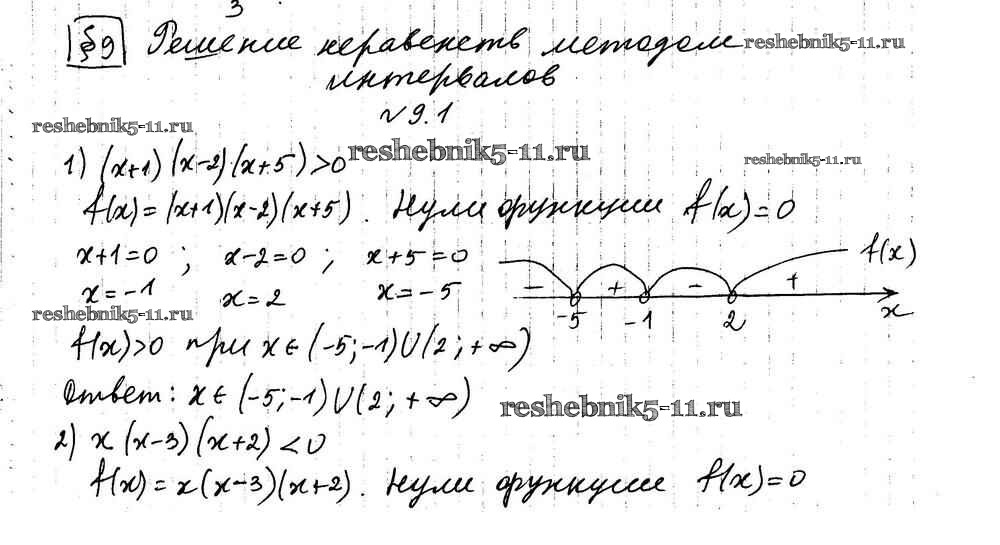 3
§9 Решение неравенств методом reshebnik5-11.ru
интервалов
№9.1
reshebnik5-11.ru
1) (x+1)(x-2)(x+5)>0 reshebnik5-11.ru reshebnik5-11.ru
f(x)=(x+1)(x-2)(x+5). Нули функции f(x)=0
x+1=0 ; x-2=0 ; x+5=0
x=-1 x=2 x=-5
f(x)
- + - +
-5 -1 2 x
reshebnik5-11.ru
f(x)>0 при x∈(-5;-1)∪(2;+∞)
Ответ: x∈(-5;-1)∪(2;+∞)
reshebnik5-11.ru
2) x(x-3)(x+2)<0
f(x)=x(x-3)(x+2). Нули функции f(x)=0